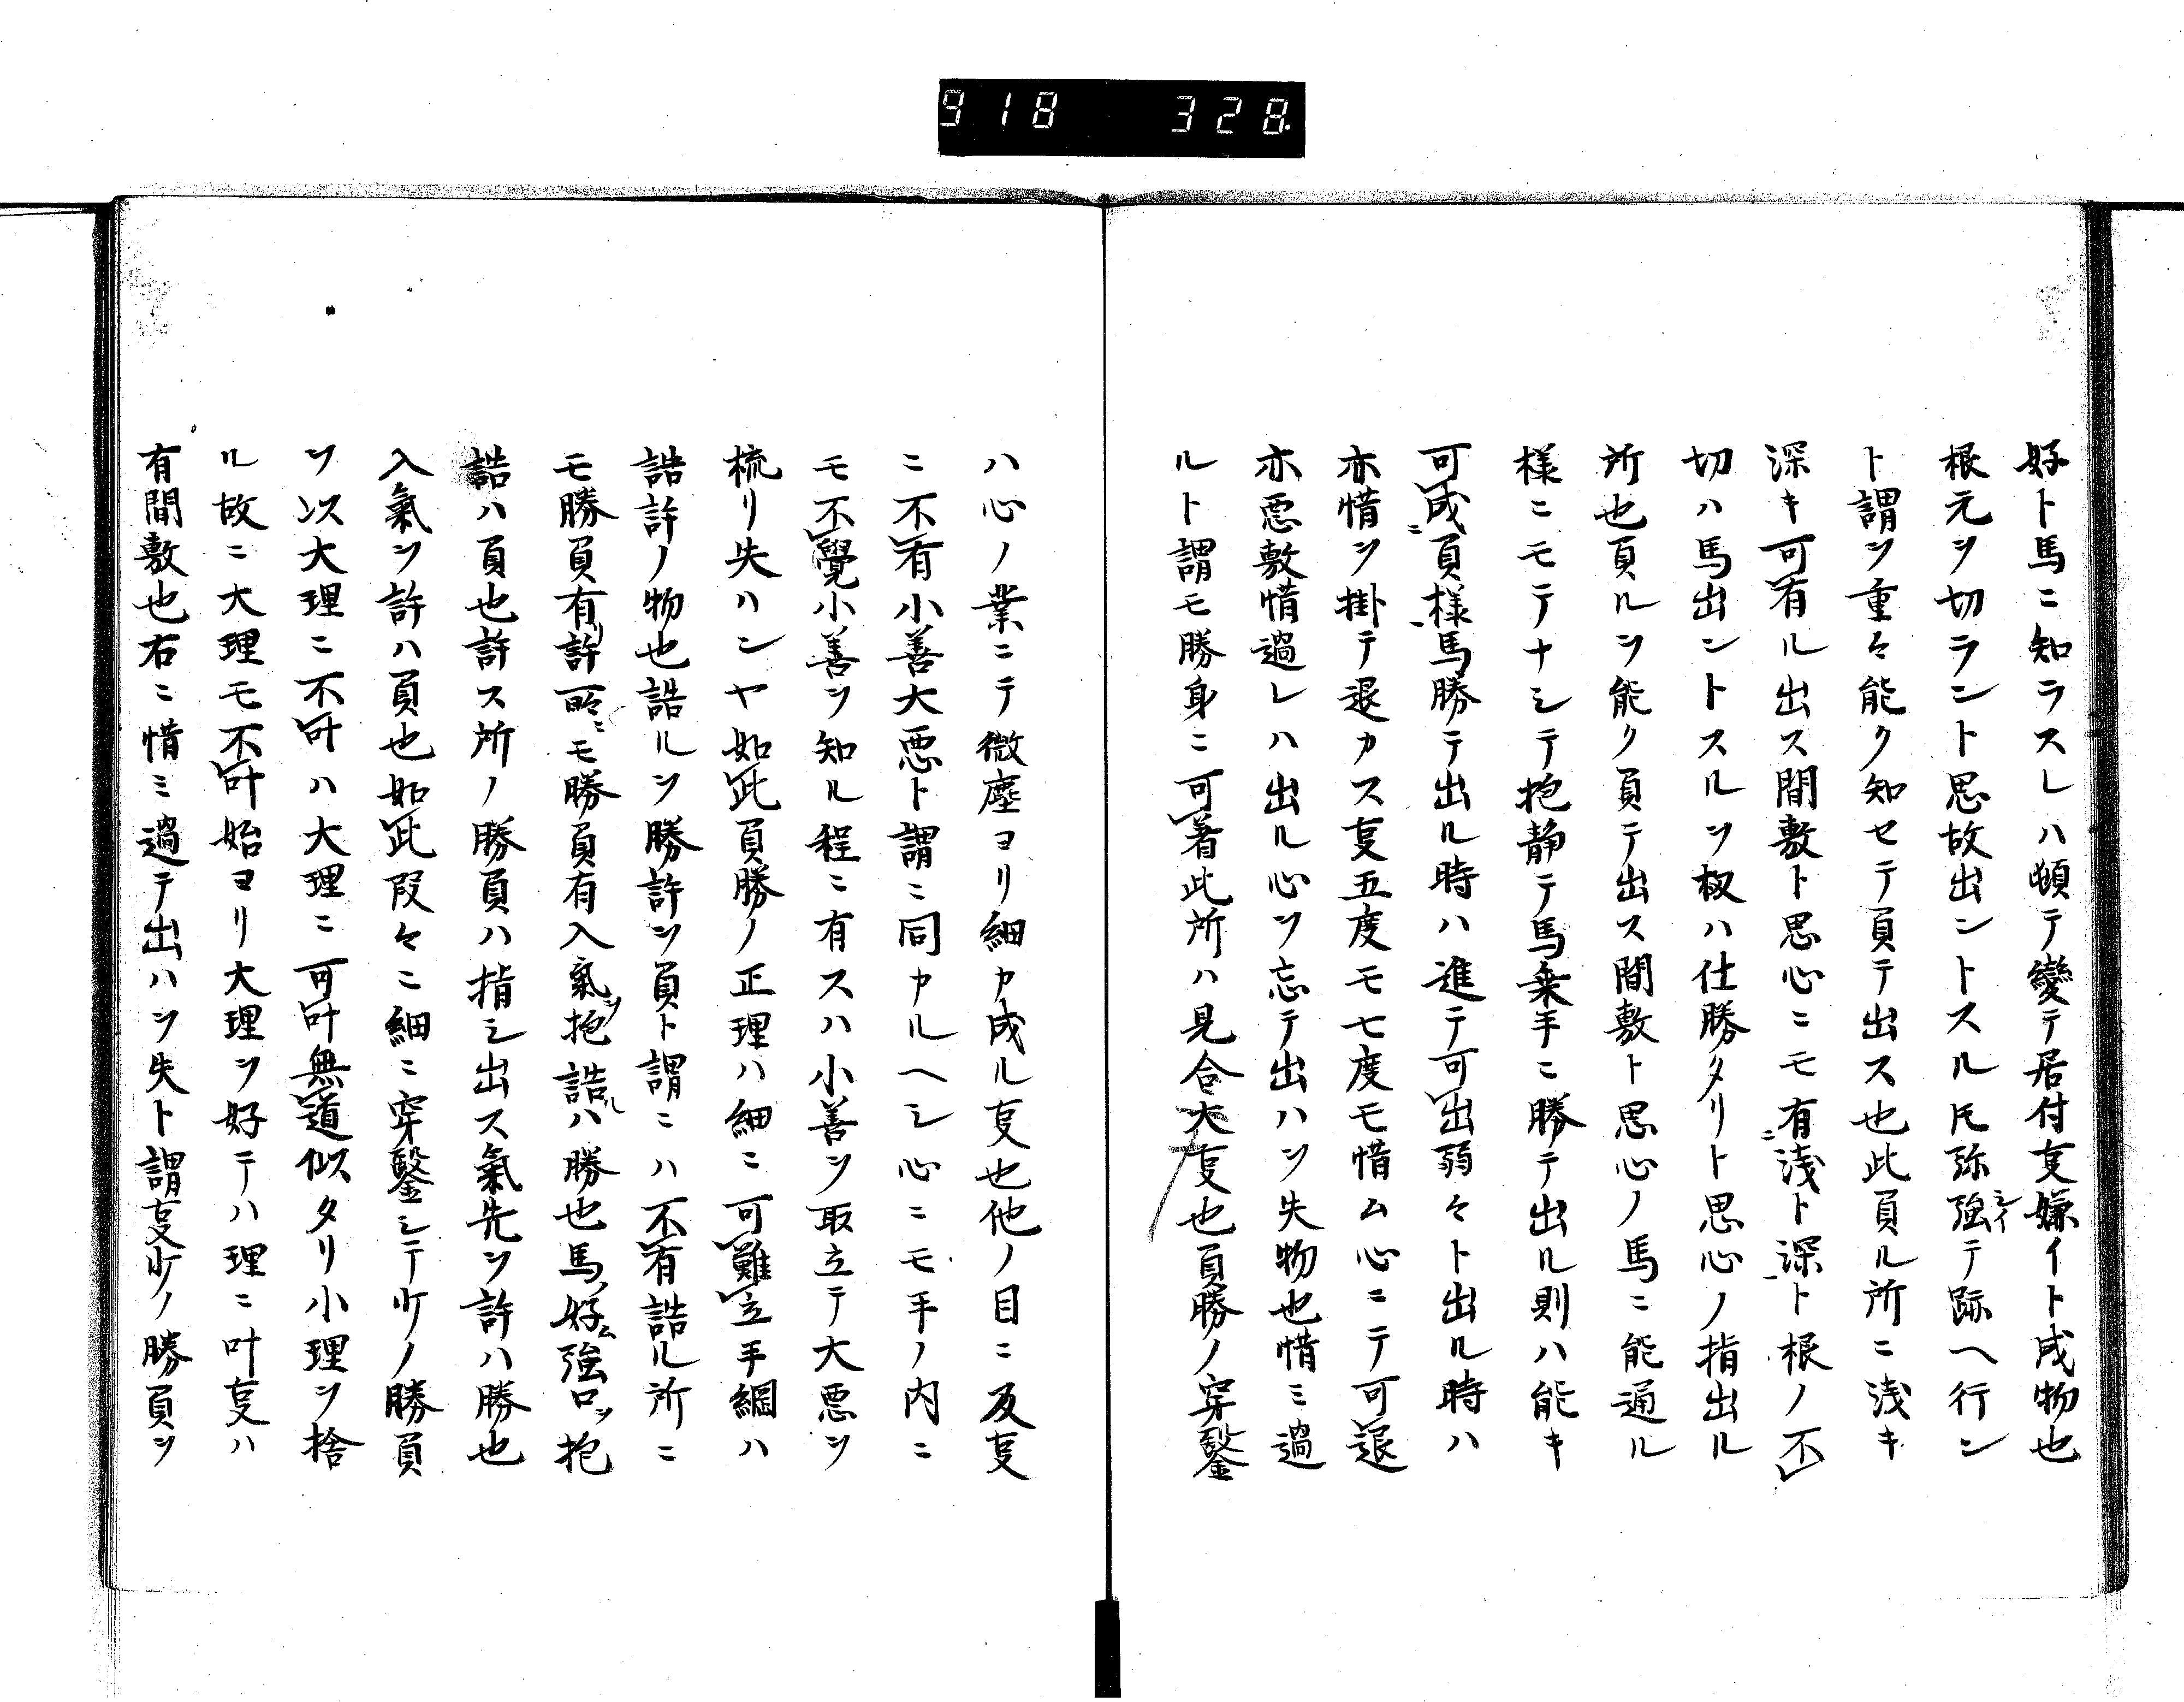 918 328
好ト馬ニ知ラスレハ頓テ變テ居付叓嫌イト成物也
根元ヲ切ラント思故出ントスル𪜈弥強シイテ跡ヘ行ン
ト謂ヲ重々能ク知セテ負テ出ス也此負ル所ニ浅キ
深キ可有ル出ス間敷ト思心ニモ有浅ト深ト根ノ不
切ハ馬出ントスルヲ扨ハ仕勝タリト思心ノ指出ル
所也負ルヲ能ク負テ出ス間敷ト思心ノ馬ニ能通ル
様ニモテナシテ抱静テ馬乗手ニ勝テ出ル則ハ能キ
可成負様馬勝テ出ル時ハ進テ可出弱々ト出ル時ハ
亦惜ヲ掛テ退カス叓五度モ七度モ惜ム心ニテ可退
亦悪敷惜過レハ出ル心ヲ忘テ出ハヲ失物也惜ミ過
ルト謂モ勝身ニ可着此所ハ見合大叓也負勝ノ穿鑿
ハ心ノ業ニテ微塵ヨリ細カ成ル叓也他ノ目ニ及叓
ニ不有小善大悪ト謂ニ同カルヘシ心ニモ手ノ内ニ
モ不覺小善ヲ知ル程ニ有スハ小善ヲ取立テ大悪ヲ
梳リ失ハンヤ如此負勝ノ正理ハ細ニ可難立手綱ハ
誥許ノ物也誥ルヲ勝許ヲ負ト謂ニハ不有誥ル所ニ
モ勝負有リ許所ニモ勝負有入氣ヲ抱誥ルハ勝也馬ノ好ム強口ヲ抱
誥ハ負也許ス所ノ勝負ハ指シ出ス氣先ヲ許ハ勝也
入氣ヲ許ハ負也如此段々ニ細ニ穿鑿シテ少ノ勝負
ヲ以大理ニ不叶ハ大理ニ可叶無道似タリ小理ヲ捨
ル故ニ大理モ不叶始ヨリ大理ヲ好テハ理ニ叶叓ハ
有間敷也右ニ惜ミ過テ出ハヲ失ト謂叓少ノ勝負ヲ